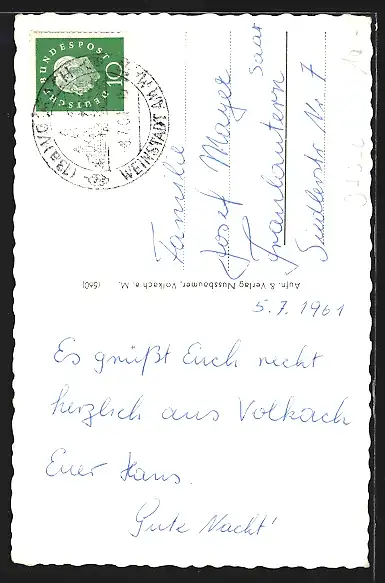 DEUTSCHE BUNDESPOST
10
(13a)
WEINSTADT AM MAIN
Familie
Josef Mayer
Fraulautern Saar
Siedlerstr. Nr 7
Aufn. & Verlag Nussbaumer, Volkach a. M. (560)
5.7.1961
Es grüßt Euch recht
herzlich aus Volkach
Euer Hans.
Gute Nacht!